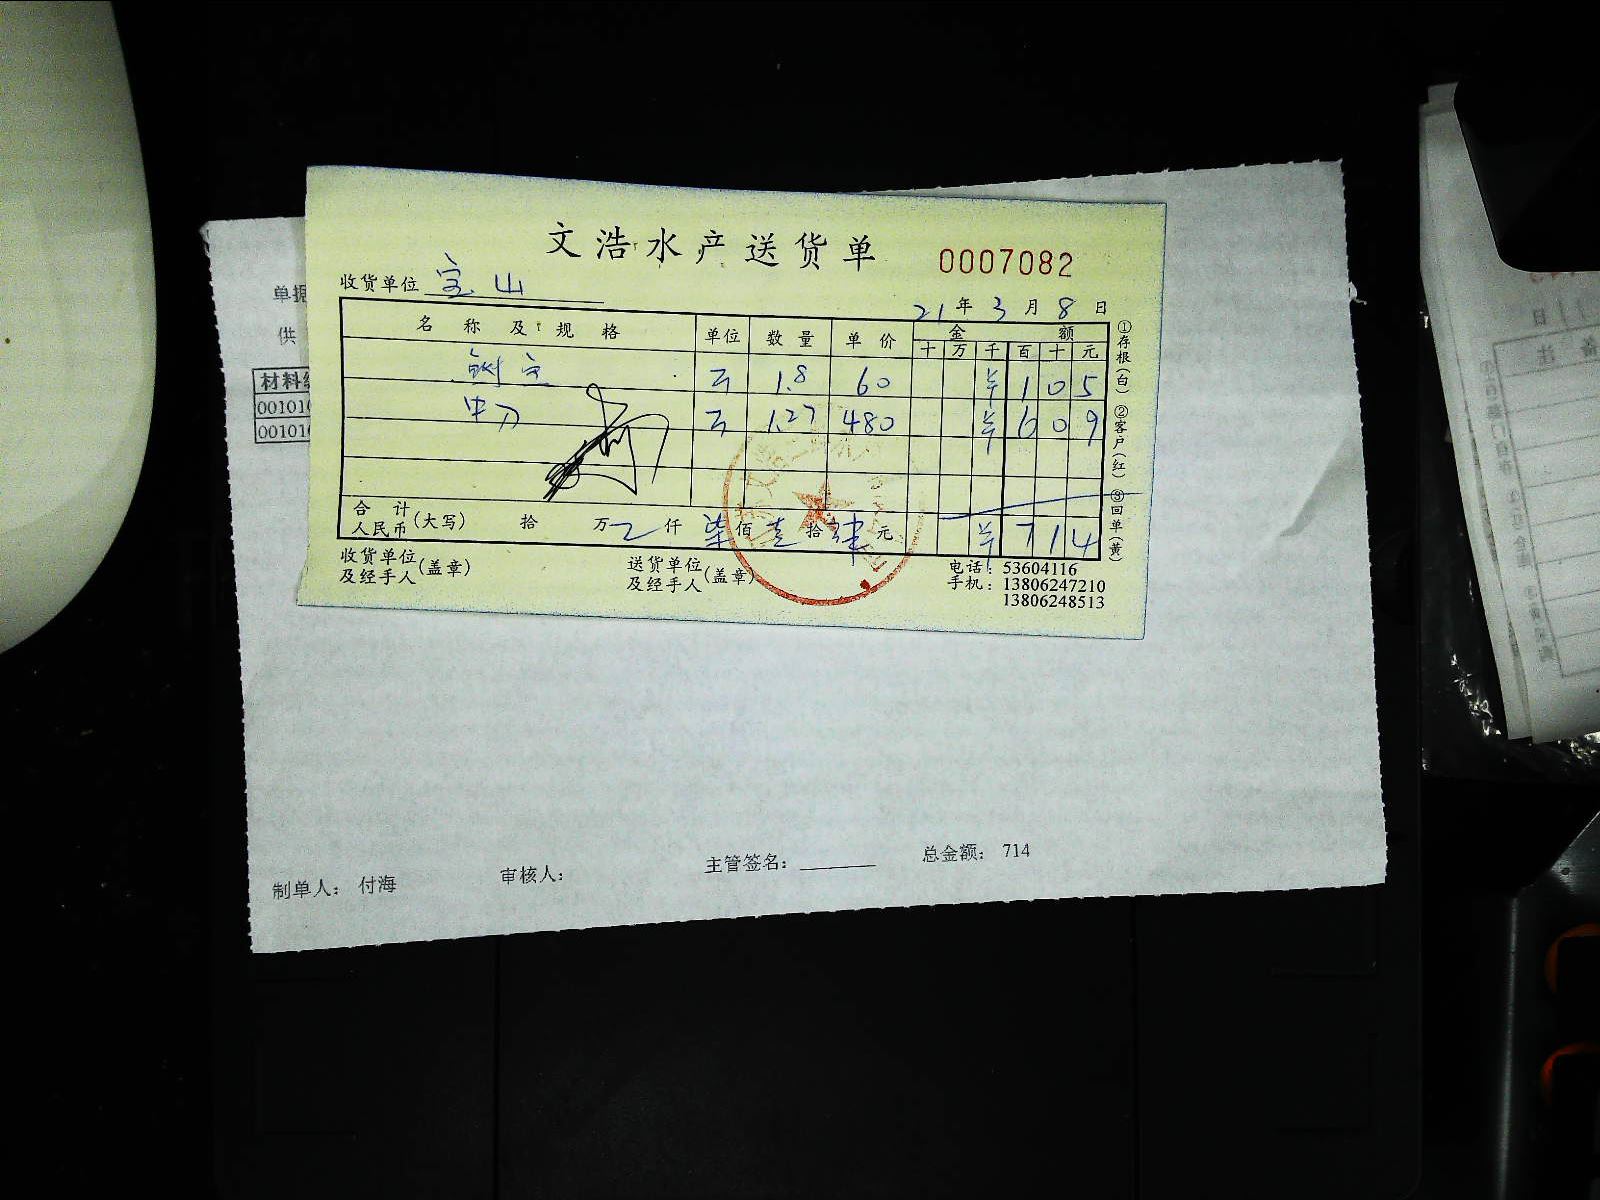 文浩水产送货单 0007082
收货单位 宝山
21年 3月 8日
名称及规格 单位 数量 单价 金额
十 万 千 百 十 元
1.8 60 ¥ 1 0 5
中刀 1.27 480 ¥ 6 0 9
合计人民币(大写) 拾 万 仟 柒佰壹拾肆元 ¥ 7 1 4
收货单位及经手人(盖章) 送货单位及经手人(盖章)
电话:53604116
手机:13806247210
13806248513
①存根(白) ②客户(红) ③回单(黄)
单据
供
材料
00101
00101
制单人: 付海 审核人: 主管签名: 总金额: 714